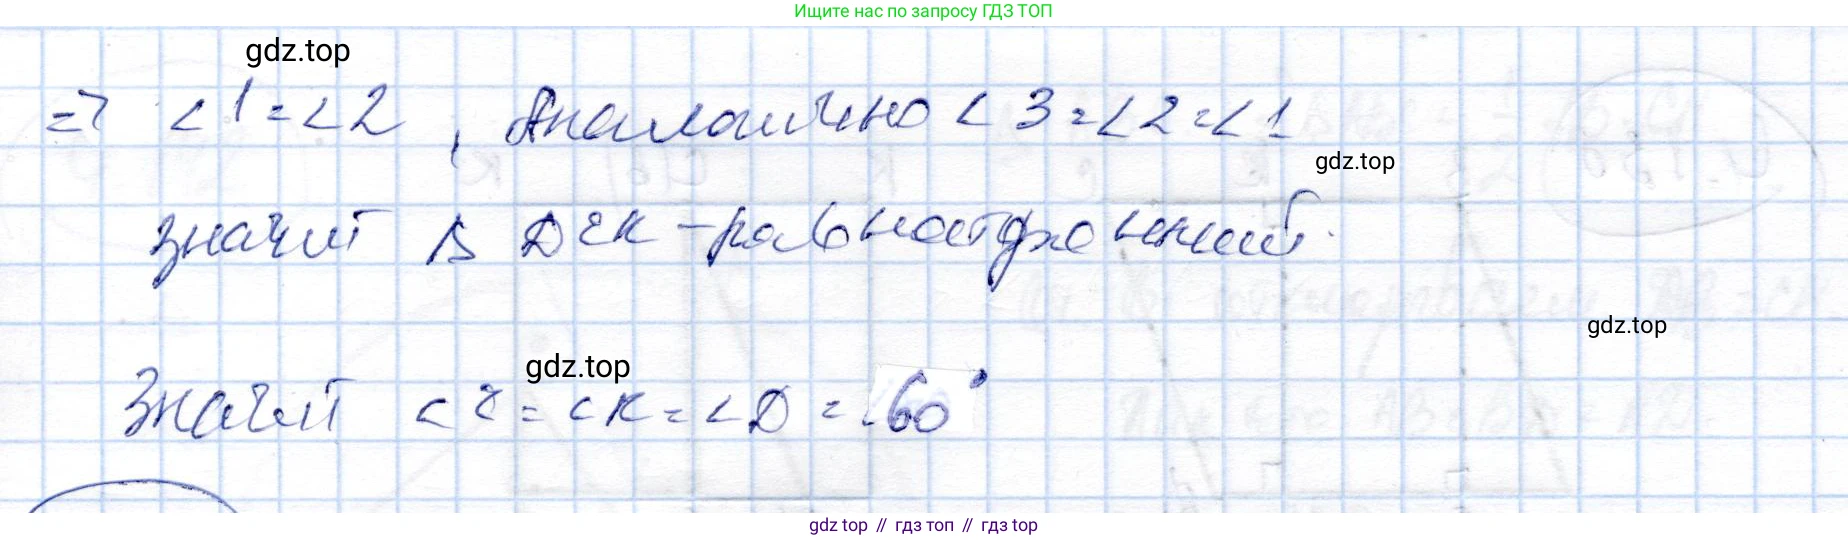 Ищите нас по запросу ГДЗ ТОП
gdz.top
=> ∠1 = ∠2, Аналогично ∠3 = ∠2 = ∠1
gdz.top
значит Δ DCK - равносторонний
gdz.top
gdz.top
Значит ∠C = ∠K = ∠D = 60°
gdz top // гдз топ // гдз top